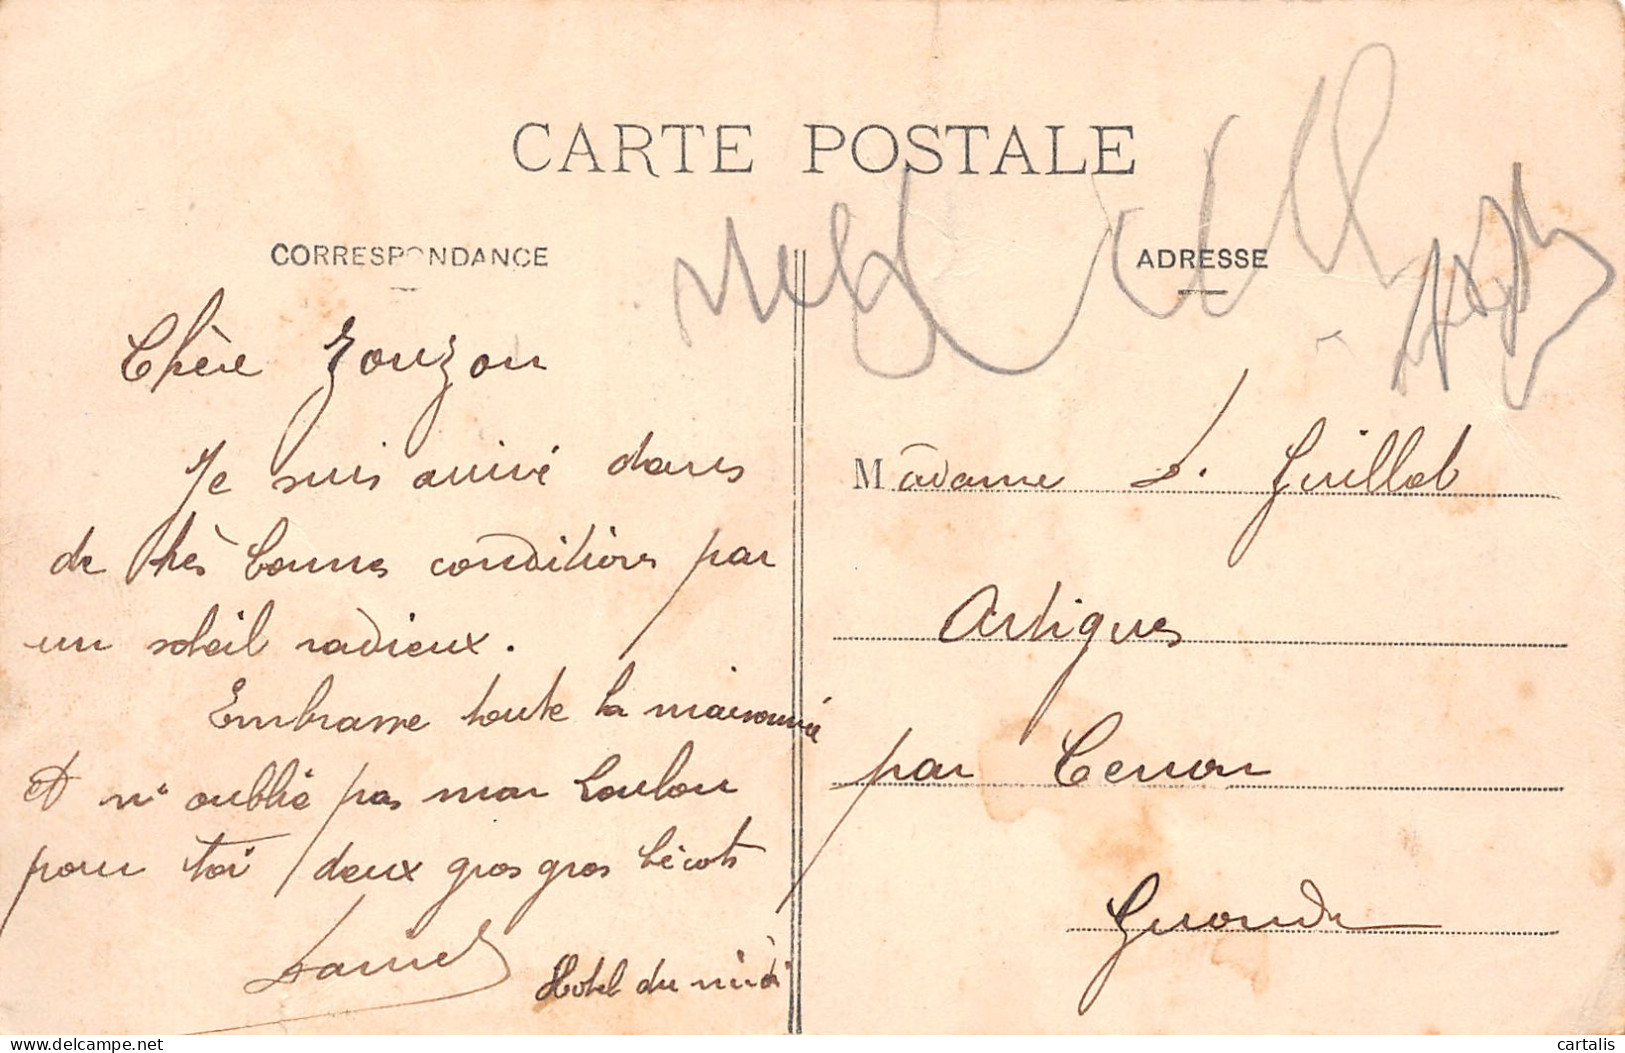 CARTE POSTALE
CORRESPONDANCE
Chère Zouzou
Je suis arrivé dans
de très bonnes conditions par
un soleil radieux.
Embrasse toute la maisonnée
et n'oublie pas mon Loulou
pour toi deux gros gros bécots
Daniel
Hotel du midi
ADRESSE
Madame L. Guillot
Artigues
par Cenon
Gironde
delcampe.net
cartalis